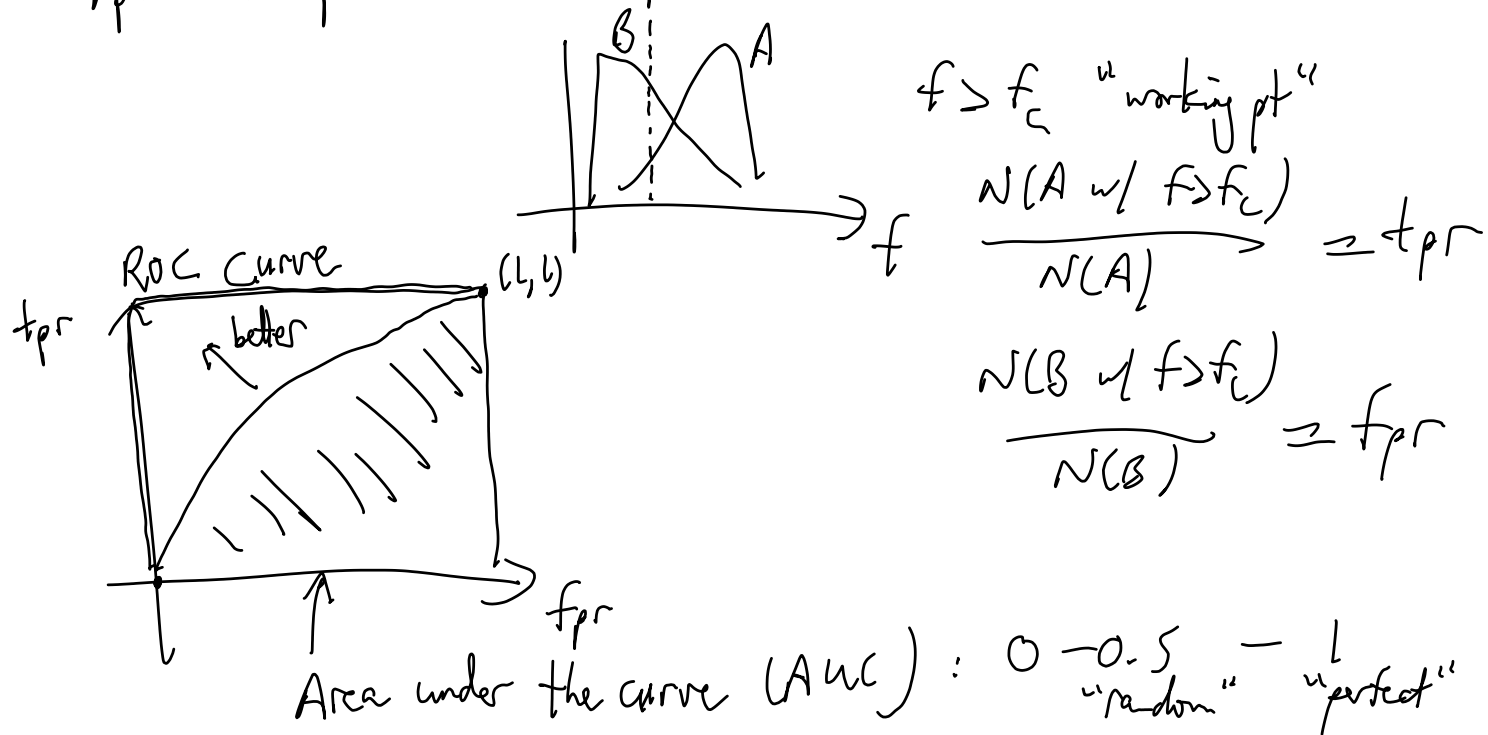 B
A
f
f > f_c "working pt"
N(A w/ f>f_c)
N(A)
= tpr
N(B w/ f>f_c)
N(B)
= fpr
ROC Curve
(1,1)
tpr
better
fpr
Area under the curve (AUC) : 0 - 0.5 - 1
"random" "perfect"